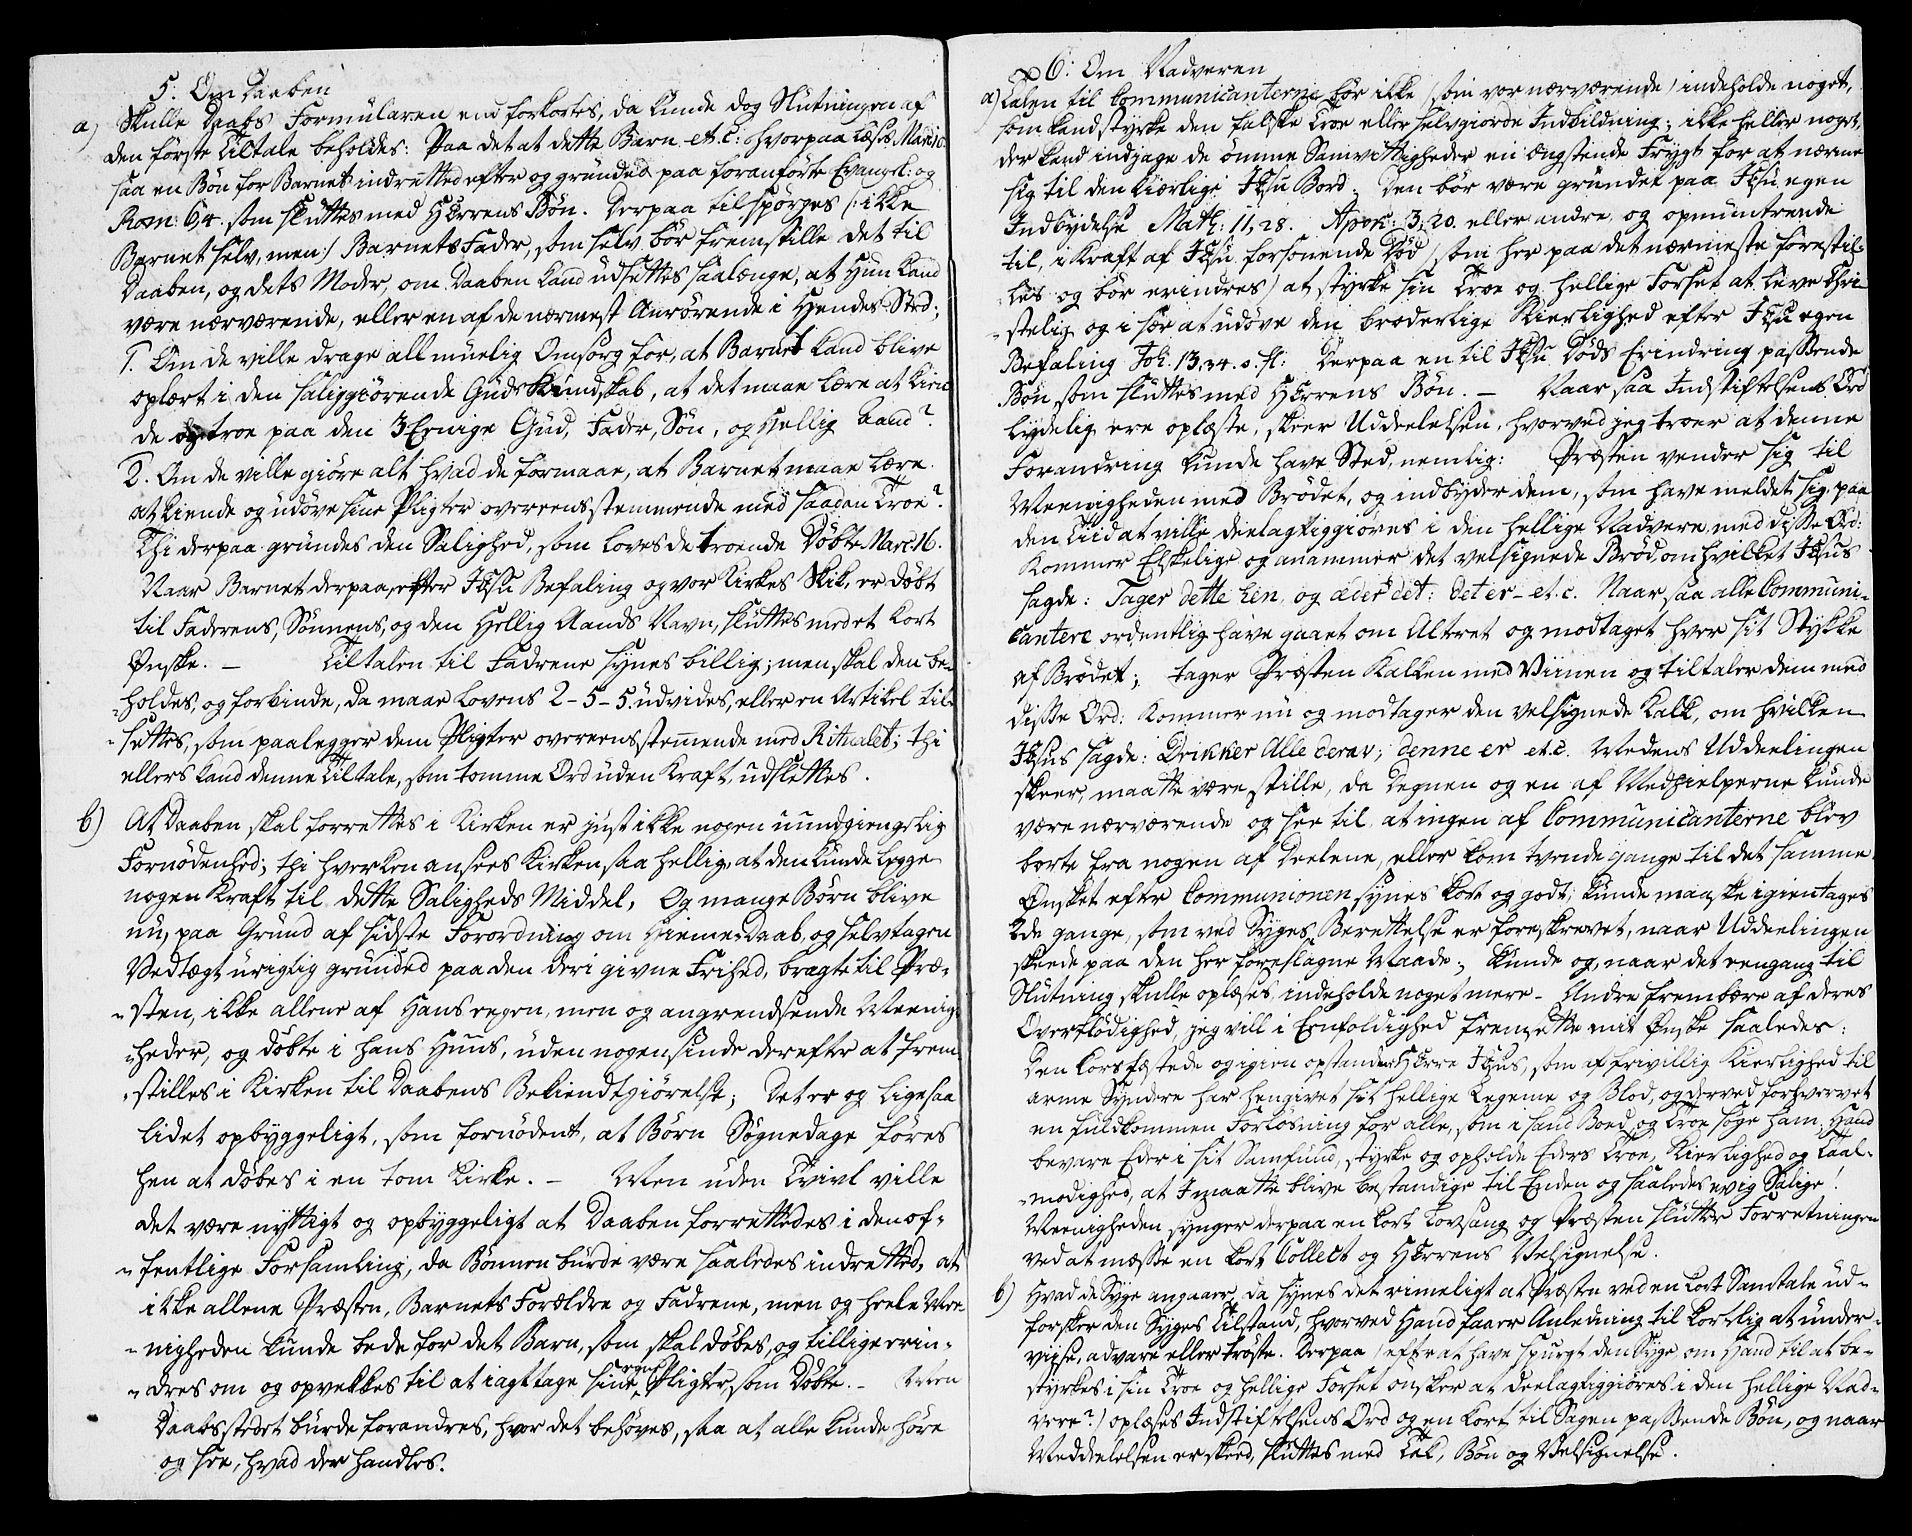 5. Om Daaben
a) Skulle Daabs Formularen end forkortes, da kunde dog Slutningen af
den første Tiltale beholdes: Paa det at dette Barn et.c: hvorpaa læses Marc: 10.
saa en Bøn for Barnet indretted efter og grunded paa foranførte Evangel: og
Rom: 6,4. som sluttes med HErrens Bøn. Derpaa tilspørges (: ikke
Barnet selv, men :) Barnets Fader, som selv bør fremstille det til
Daaben, og dets Moder, om Daaben kand udsettes saalænge, at Hun kand
være nærværende, eller en af de nærmest Anrørende i Hendes Sted;
1. Om de ville drage all muelig Omsorg for, at Barnet kand blive
oplært i den saliggiørende Guds Kundskab, at det maae lære at kien
de og troe paa den 3Eenige Gud, Fader, Søn, og Hellig Aand?
2. Om de ville giøre alt hvad de formaae, at Barnet maae lære
at kiende og udøve sine Pligter overeensstemmende med saadan Troe?
Thi derpaa grundes den Salighed, som loves de troende Døbte Marc. 16.
Naar Barnet derpaa, efter JEsu Befaling og vor Kirkes Skik, er døbt
til Faderens, Sønnens, og den Hellig Aands Navn, sluttes med et kort
Ønske. — Tiltalen til Fadrene synes billig; men skal den be-
holdes, og forbinde, da maae Lovens 2-5-5. udvides, eller en Artikel til-
settes, som paalegger dem Pligter overeenstemende med Ritualet; thi
ellers kand denne Tiltale, som tomme Ord uden Kraft, udslettes.
b) At Daaben skal forrettes i Kirken er just ikke nogen uundgiengelig
Fornødenhed; thi hverken ansees Kirken saa hellig, at den kunde legge
nogen Kraft til dette Saligheds Middel, Og mange Børn blive
nu, paa Grund af sidste Forordning om Hieme-Daab, og selvtagen
Vedtægt urigtig grunded paa den deri givne Frihed, bragte til Præ-
sten, ikke allene af Hans egen, men og angrendsende Meenig-
heder, og døbte i hans Huus, uden nogensinde derefter at frem-
stilles i Kirken til Daabens Bekiendtgiørelse; Det er og ligesaa
lidet opbyggeligt, som fornødent, at Børn Søgnedage føres
hen at døbes i en tom Kirke. — Men uden Tvivl ville
det være nyttigt og opbyggeligt at Daaben forrettedes i den of-
fentlige Forsamling, da Bønnen burde være saaledes indretted, at
ikke allene Præsten, Barnets Forældre og Fadrene, men og heele Mee-
nigheden kunde bede for det Barn, som skal døbes, og tillige erin-
dres om og opvekkes til at iagttage sine egne Pligter, som Døbte. — Men
Daabsstedet burde forandres, hvor det behøves, saa at alle kunde høre
og see, hvad der handles.
6: Om Nadveren
a) Talen til Communicanterne bør ikke (som vor nærværende) indeholde noget,
som kand styrke den falske Troe eller selvgiorde Indbildning; ikke heller noget,
der kand indjage de ømme Samvittigheder en ængstende Frygt for at nærme
sig til den kiærlige JEsu Bord. Den bør være grundet paa JEsu egen
Indbydelse Math: 11,28. Apoc: 3,20. eller andre, og opmuntrende
til, i Kraft af JEsu forsonende Død (som her paa det nærmeste forestil-
les og bør erindres) at styrke sin Troe og hellige Forset at leve Chri-
stelig og i sær at udøve den broderlige Kierlighed efter JEsu egen
Befaling Joh. 13,34. o. fl: Derpaa en til JEsu Døds Erindring passende
Bøn som sluttes med HErrens Bøn. — Naar saa Indstiftelsens Ord
lydelig ere oplæste, skeer Uddeelelsen, hvorved jeg troer at denne
Forandring kunde have Sted, nemlig: Præsten vender sig til
Meenigheden med Brødet, og indbyder dem, som have meldet sig paa
den Tiid at ville deelagtiggiøres i den hellige Nadvere med disse Ord:
Kommer Elskelige og anammer det velsignede Brød om hvilket JEsus
sagde: Tager dette hen, og æder det: det er — et.c. Naar saa alle Communi-
cantere ordentlig have gaaet om Altret og modtaget hver sit Stykke
af Brødet; tager Præsten Kalken med Viinen og tiltaler dem med
disse Ord: Kommer nu og modtager den velsignede Kalk, om hvilken
JEsus sagde: Drikker Alle derav; denne er et.c. Medens Uddeelingen
skeer, maatte være stille, da Degnen og en af Medhielperne kunde
være nærværende og see til at ingen af Communicanterne blev
borte fra nogen af Deelene, eller kom tvende gange til det samme.
Ønsket efter Communionen synes kort og godt; kunde maaske igientages
2de gange, som ved Syges Berettelse er foreskrevet, naar Uddeelingen
skeede paa den her foreslagne Maade; kunde og, naar det eengang til
Slutning skulle oplæses, indeholde noget mere — Andre frembære af deres
Overflødighed, jeg vill i Eenfoldighed fremsette mit Ønske saaledes:
Den korsfæstede og igien opstandne HErre JEsus, som af frivillig Kierlighed til
arme Syndere har hengivet sit hellige Legeme og Blod, og derved forhvervet
en fuldkommen Forløsning for alle, som i sand Boed og Troe søge ham, Hand
bevare Eder i sit Samfund, styrke og opholde Eders Troe, Kierlighed og Taal-
modighed, at I maatte blive bestandige til Enden og saaledes evig Salige!
Meenigheden synger derpaa en kort Lovsang og Præsten slutter Forretningen
ved at mæsse en kort Collect og HErrens Velsignelse.
b) Hvad de Syge angaaer, da synes det rimeligt at Præsten ved en kort Samtale ud-
forsker den Syges Tilstand, hvorved Hand faaer Anledning til kortelig at under-
viise, advare eller trøste. Derpaa (efter at have spurgt den Syge om Hand til at be-
styrkes i sin Troe og hellige Forset ønsker at deelagtiggiøres i den hellige Nad-
vere?) oplæses Indstiftelsens Ord og en kort til Sagen passende Bøn, og naar
Meddeelelsen er skeed, sluttes med Tak, Bøn og Velsignelse.